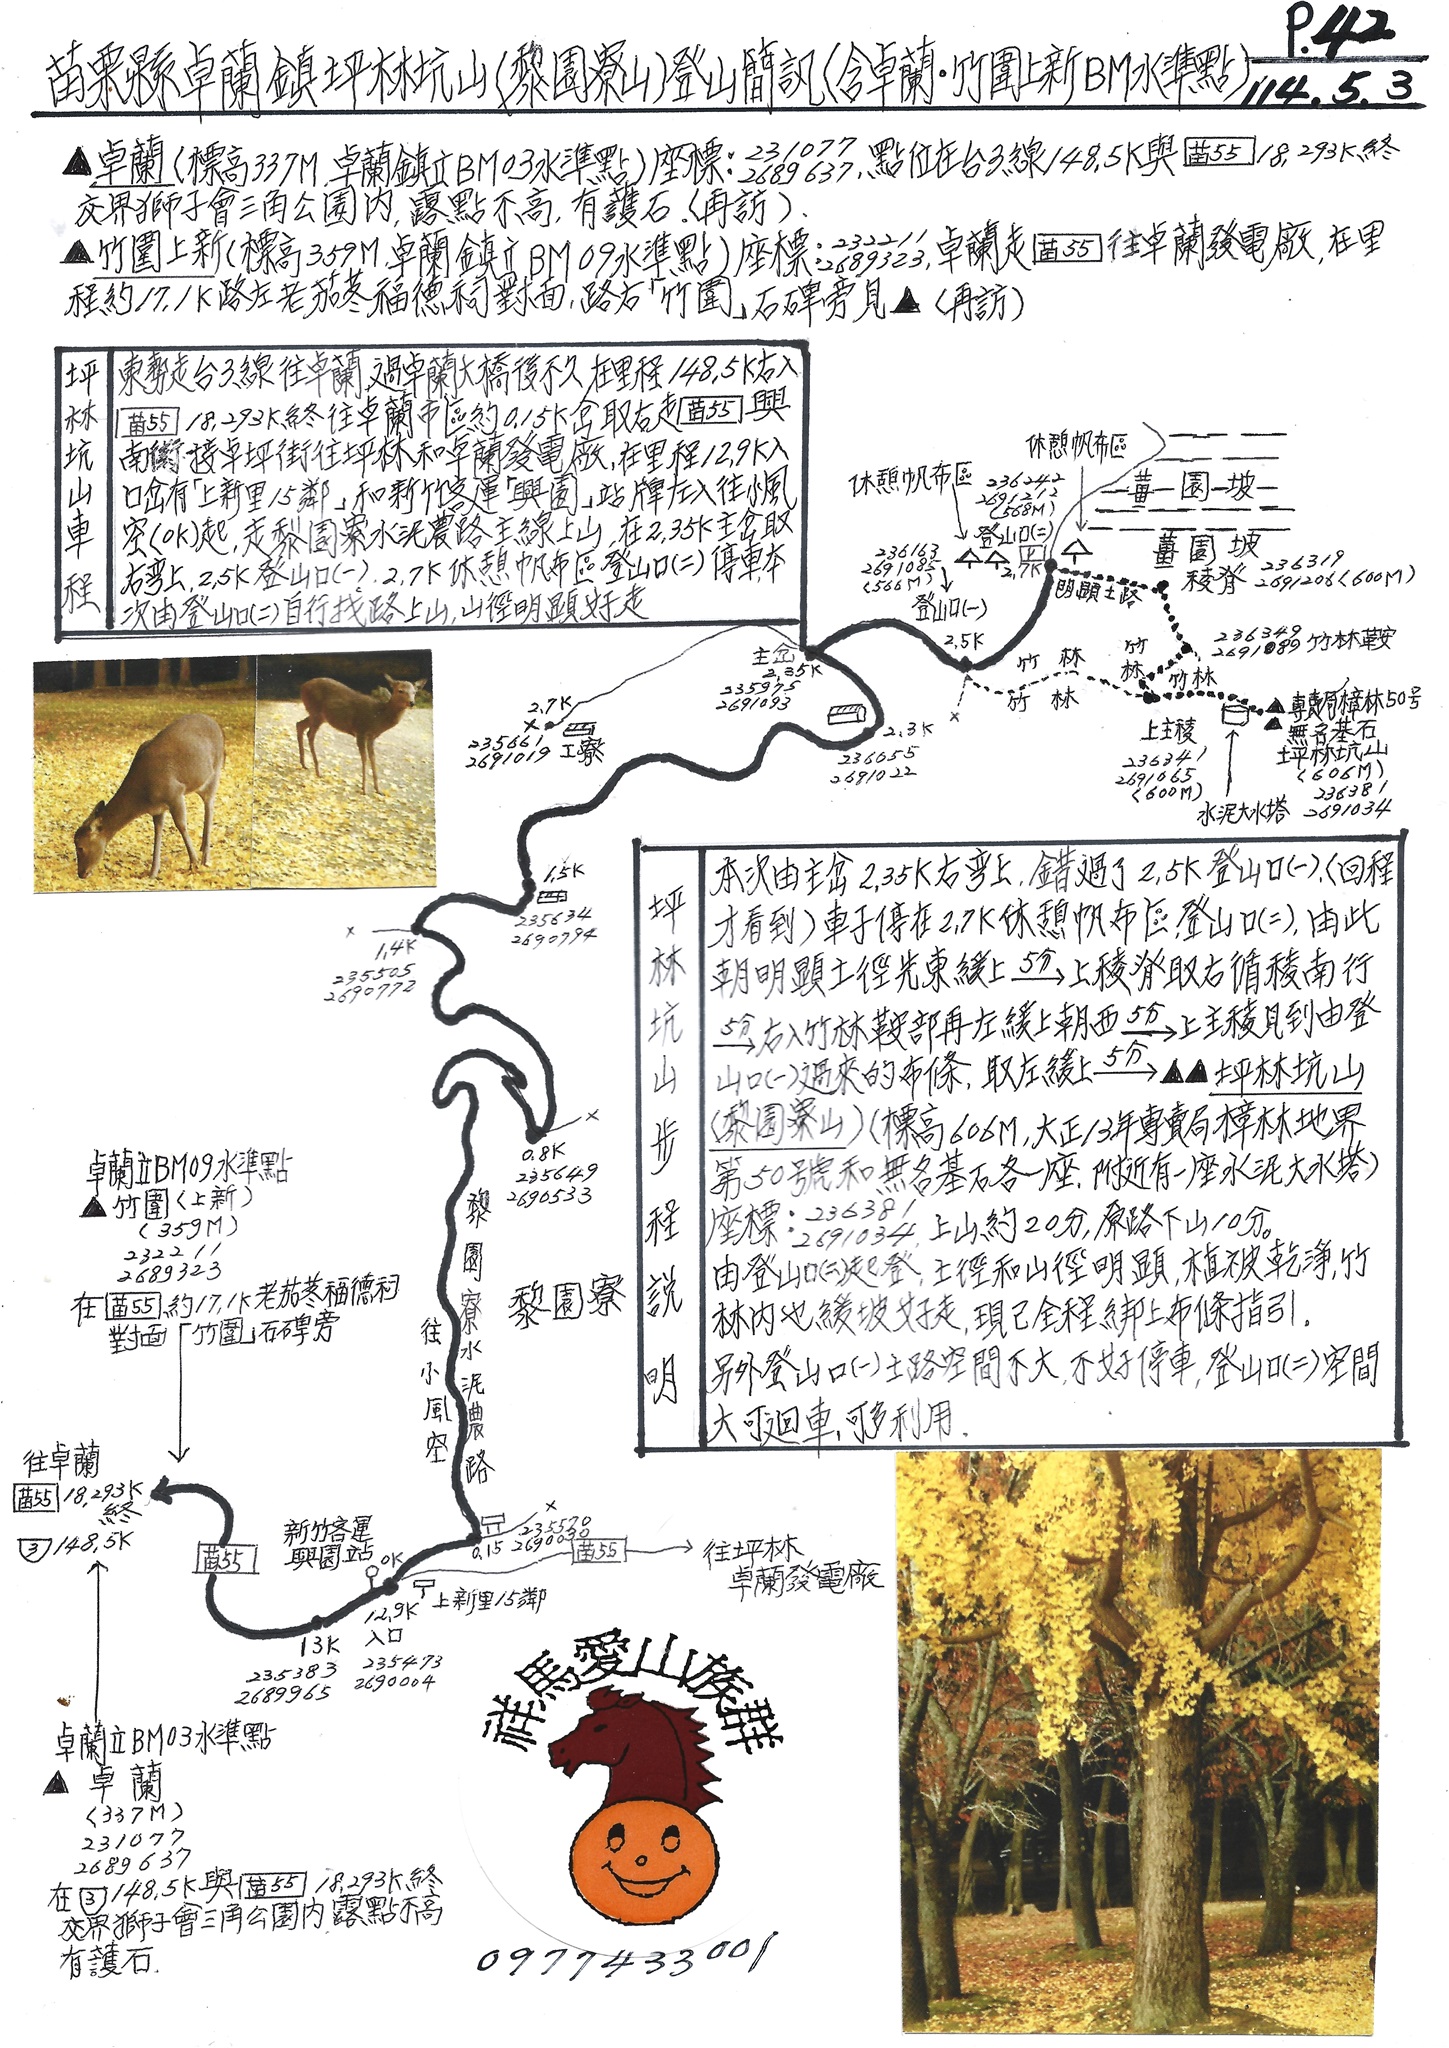 P.42
苗栗縣卓蘭鎮坪林坑山(黎園寮山)登山簡訊(含卓蘭·竹圍上新BM水準點)
114.5.3
▲卓蘭(標高337M.卓蘭鎮立BM03水準點)座標:231077 2689637.點位在台3線148.5K與苗55 18.293K終
交界獅子會三角公園內,露點不高,有護石.(再訪).
▲竹圍上新(標高359M.卓蘭鎮立BM09水準點)座標:232211 2689323,卓蘭走苗55往卓蘭發電廠,在里
程約17.1K路左老茄苳福德祠對面,路右「竹圍」石碑旁見▲(再訪)
坪林坑山車程
東勢走台3線往卓蘭,過卓蘭大橋後不久在里程148.5K右入
苗55 18.293K終往卓蘭市區約0.15K岔取右走苗55興
南街接卓坪街往坪林和卓蘭發電廠,在里程12.9K入
口岔有「上新里15鄰」和新竹客運「興園」站牌左入往小風
空(0K)起,走黎園寮水泥農路主線上山,在2.35K主岔取
右彎上,2.5K登山口(一).2.7K休憩帆布區登山口(二)停車,本
次由登山口(二)自行找路上山,山徑明顯好走
休憩帆布區
236242
2691212
(568M)
登山口(二)
休憩帆布區
薑園坡
薑園坡
236163
2691085
(566M)
登山口(一)
2.7K
明顯土路
稜脊 236319
2691206(600M)
236349
2691089 竹林鞍
竹林
竹林
竹林
竹林
2.5K
主岔
2.35K
235975
2691093
2.7K
235661
2691019
工寮
2.3K
236055
2691022
上主稜
236341
2691065
(600M)
水泥大水塔
▲專賣局樟林50号
▲無名基石
坪林坑山
(606M)
236381
2691034
1.5K
235634
2690794
1.4K
235505
2690772
0.8K
235649
2690533
坪林坑山步程說明
本次由主岔2.35K右彎上,錯過了2.5K登山口(一),(回程
才看到)車子停在2.7K休憩帆布區,登山口(二),由此
朝明顯土徑先東緩上5分→上稜脊取右循稜南行
5分→右入竹林鞍部再左緩上朝西5分→上主稜見到由登
山口(一)過來的布條,取左緩上5分→▲▲坪林坑山
(黎園寮山)(標高606M,大正13年專賣局樟林地界
第50號和無名基石各一座.附近有一座水泥大水塔)
座標:236381 2691034,上山約20分,原路下山10分。
由登山口(二)起登,土徑和山徑明顯,植被乾淨,竹
林內也緩坡好走,現已全程綁上布條指引.
另外登山口(一)土路空間不大,不好停車,登山口(二)空間
大可迴車,可多利用.
卓蘭立BM09水準點
▲竹圍(上新)
(359M)
232211
2689323
在苗55約17.1K老茄苳福德祠
對面「竹圍」石碑旁
黎園寮水泥農路
往小風空
黎園寮
往卓蘭
苗55 18.293K
終
3 148.5K
苗55
新竹客運
興園站
0K
0.15
235570
苗55
往坪林
卓蘭發電廠
上新里15鄰
12.9K
入口
235473
2690004
13K
235383
2689965
卓蘭立BM03水準點
▲卓蘭
(337M)
231077
2689637
在3 148.5K與苗55 18.293K終
交界獅子會三角公園內露點不高
有護石.
祥馬愛山族群
0977433001